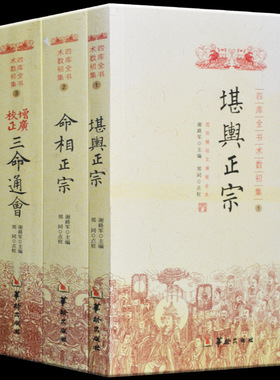 四库全书
术数初集
③
增廣
校正
三命通會
谢路军 主编
郑同 点校
華齡出版社
四库全书
术数初集
②
命相正宗
谢路军 主编
郑同 点校
華齡出版社
四库全书
术数初集
①
堪輿正宗
谢路军 主编
郑同 点校
華齡出版社
四库全书术数初集
①
堪輿正宗
谢路军 主编
郑同 点校
華齡出版社